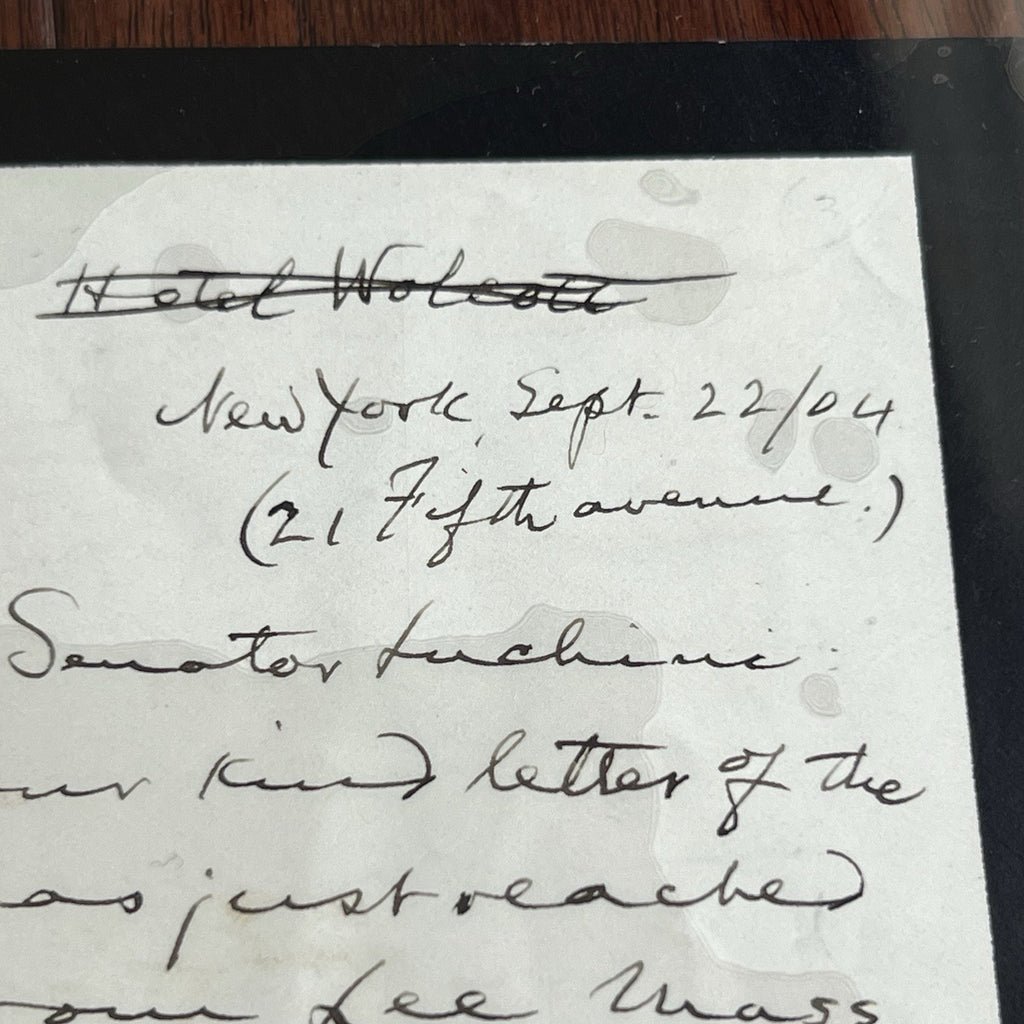 Hotel Wolcott
New York, Sept. 22/04
(21 Fifth avenue.)
Senator Luchini:
ur kind letter of the
as just reached
Lee Mass